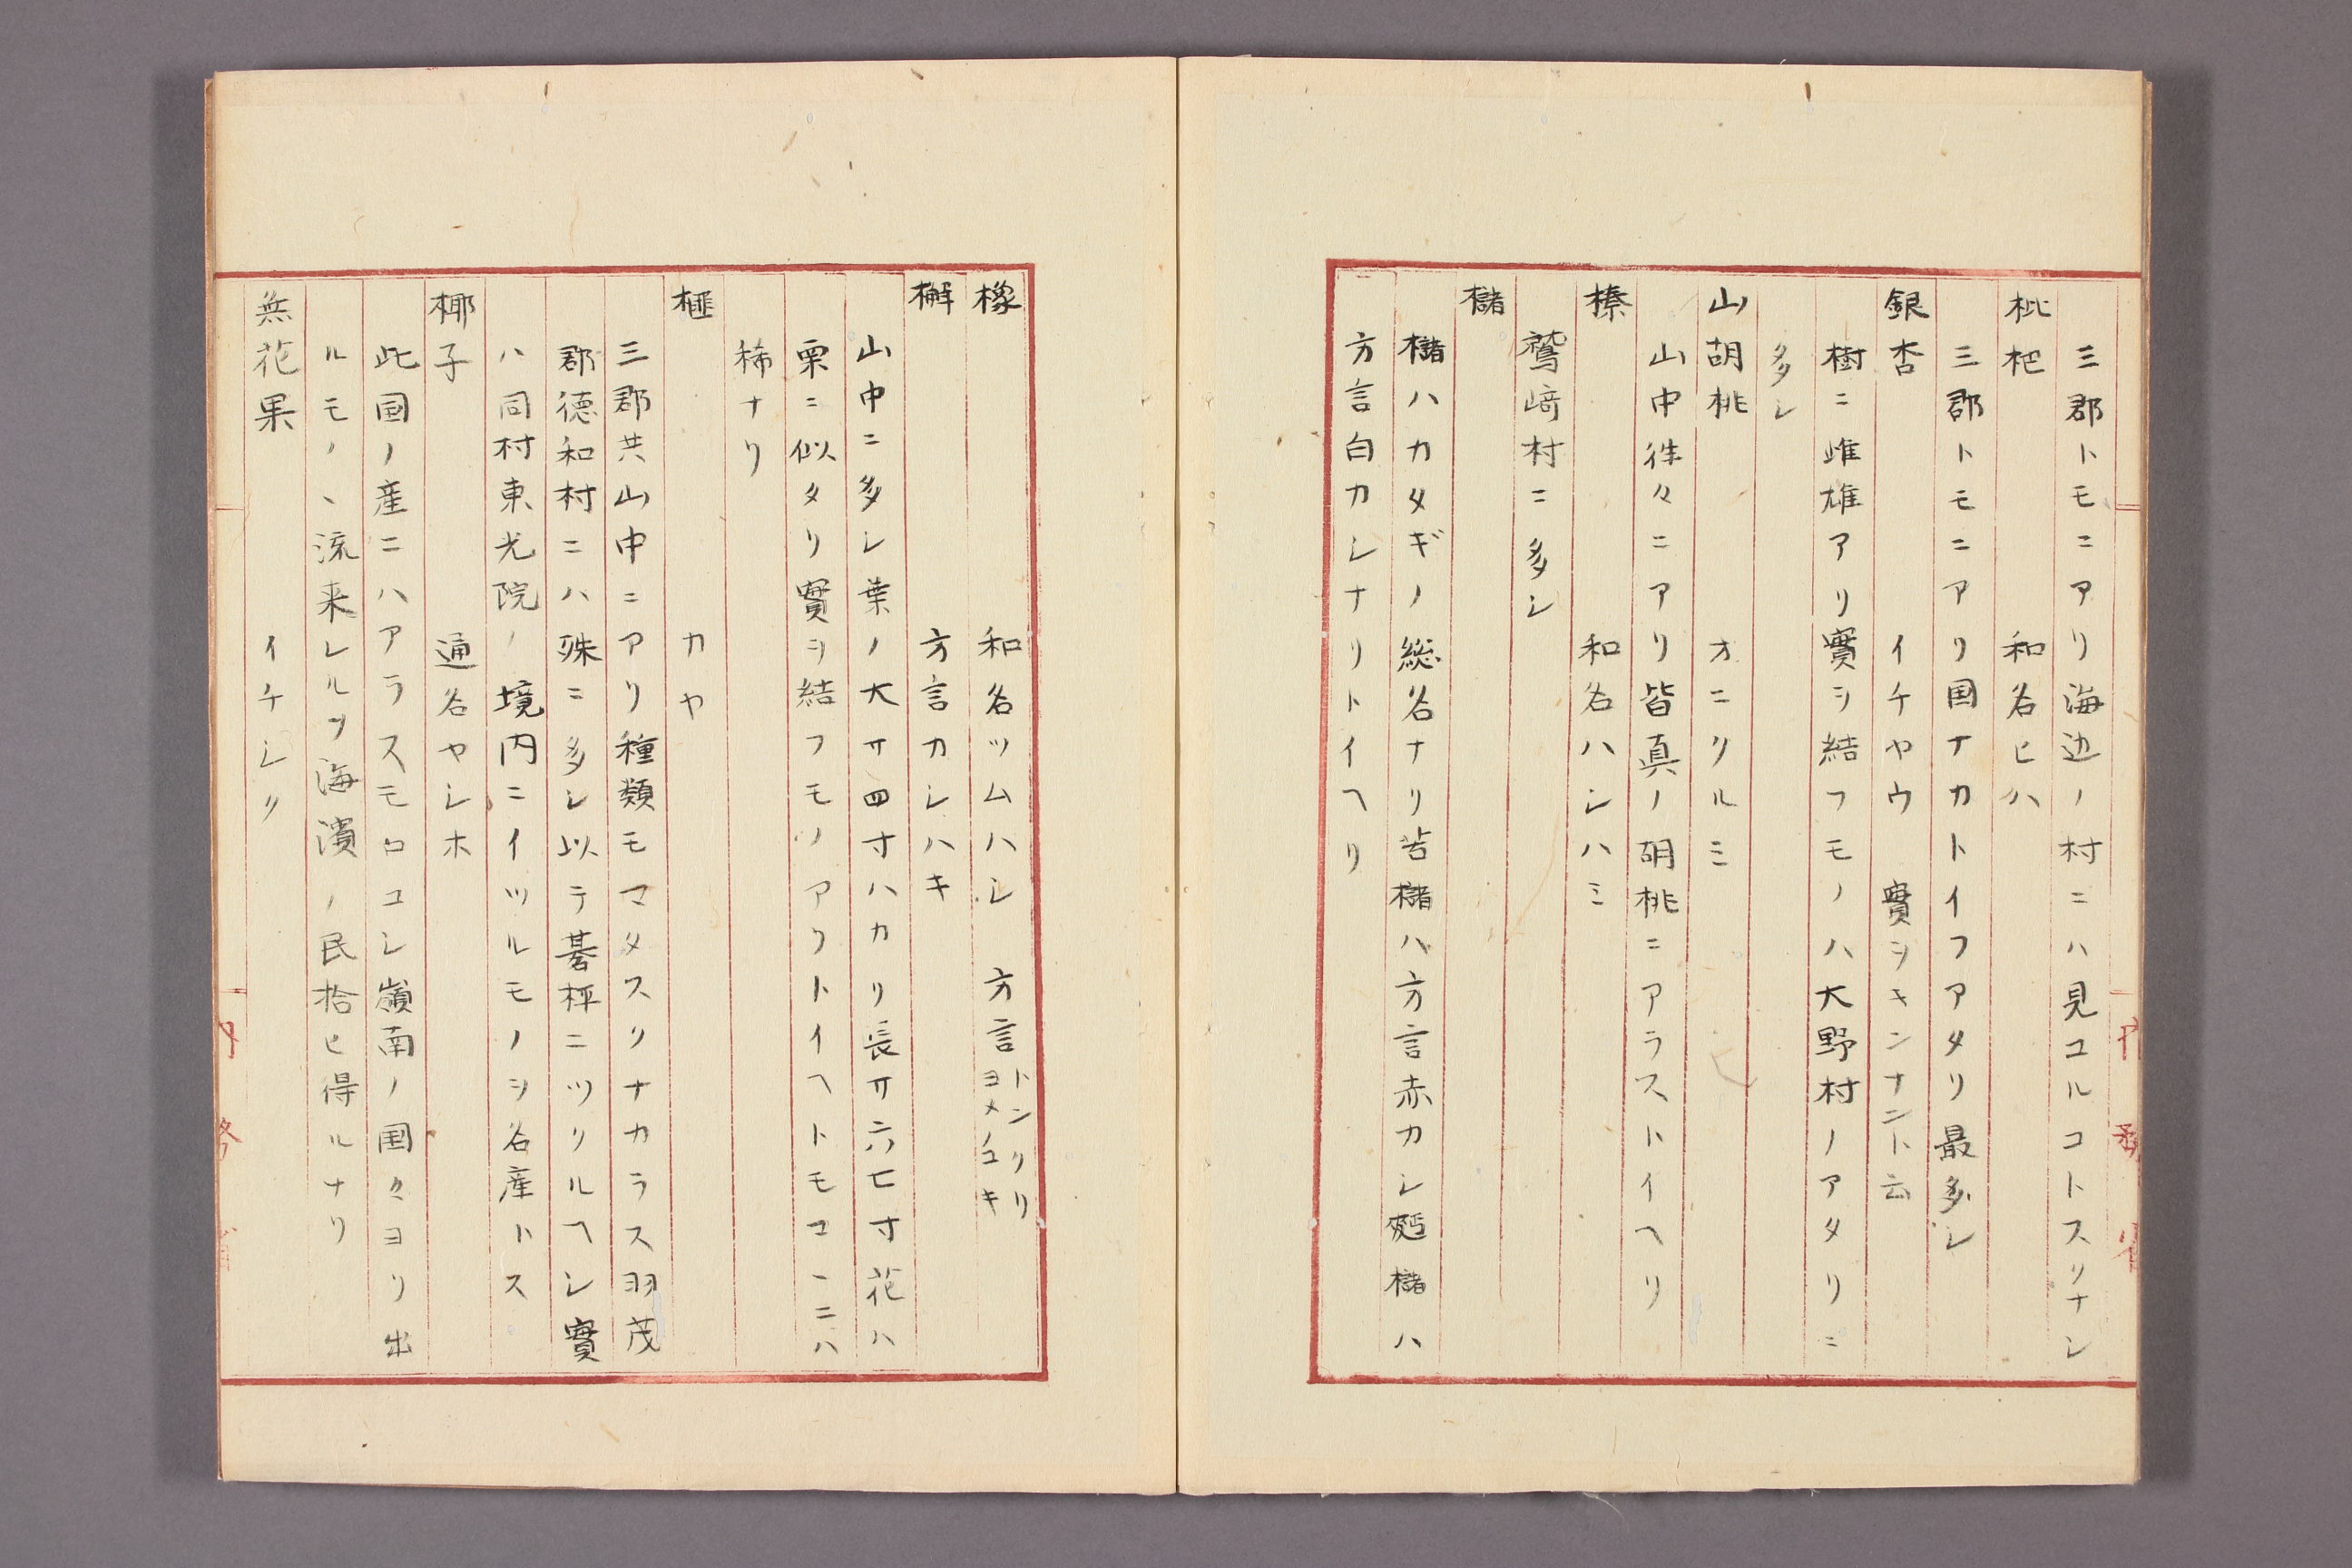 三郡トモニアリ海辺ノ村ニハ見コルコトスリナシ
枇杷 和名ヒハ
三郡トモニアリ国ナカトイフアタリ最多シ
銀杏 イチヤウ 實ヲキンナント云
樹ニ雌雄アリ實ヲ結フモノハ大野村ノアタリニ
多シ
山胡桃 オニクルミ
山中徃々ニアリ皆真ノ胡桃ニアラストイヘリ
榛 和名ハシハミ
鷲﨑村ニ多シ
櫧
櫧ハカタギノ総名ナリ苦櫧ハ方言赤カシ麪櫧ハ
方言白カシナリトイヘリ
橡 和名ツムハシ 方言トンクリ
ヨメ
キ
槲 方言カシハキ
山中ニ多シ葉ノ大サ四寸ハカリ長サ六七寸花ハ
栗ニ似タリ實ヲ結フモノアリトイヘトモコヽニハ
稀ナリ
榧 カヤ
三郡共山中ニアリ種類モマタスクナカラス羽茂
郡徳和村ニハ殊ニ多シ以テ碁枰ニツクルヘシ實
ハ同村東光院ノ境内ニイツルモノヲ名産トス
椰子 通名ヤシホ
此国ノ産ニハアラスモロコシ嶺南ノ国々ヨリ出
ルモノヽ流来レルヲ海濱ノ民拾ヒ得ルナリ
無花果 イチシク
内務省